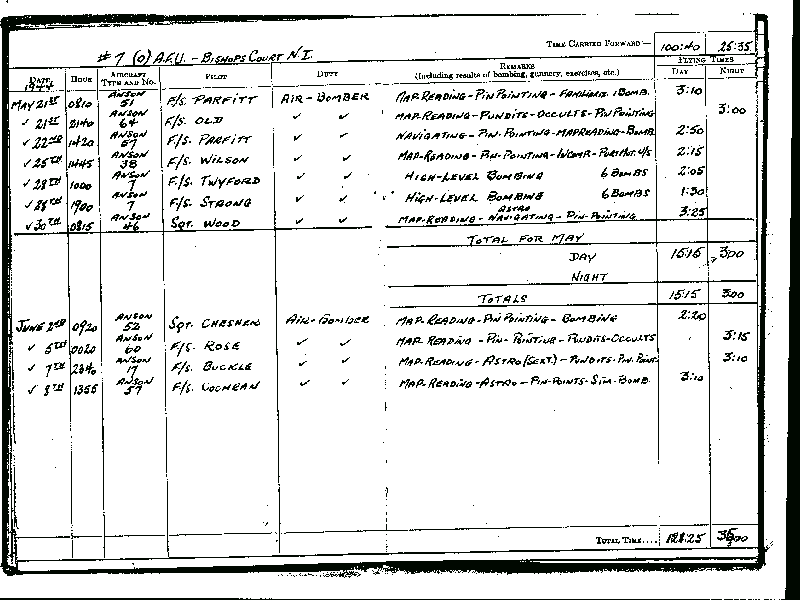 TIME CARRIED FORWARD— 100:40 25:35
# 7 (O) A.F.U. – BISHOPS COURT N.I.
DATE 1944 HOUR AIRCRAFT TYPE AND NO. PILOT DUTY REMARKS (Including results of bombing, gunnery, exercises, etc.) FLYING TIMES DAY NIGHT
MAY 21ST 0810 ANSON 51 F/S. PARFITT AIR-BOMBER MAP-READING-PIN POINTING-FAMILIARIS. 1 BOMB. 3:10
✓ 21ST 2140 ANSON 64 F/S. OLD ✓ ✓ MAP-READING-PUNDITS-OCCULTS-PIN POINTING 3:00
✓ 22ND 1420 ANSON 57 F/S. PARFITT ✓ ✓ NAVIGATING-PIN-POINTING-MAPREADING-BOMB. 2:50
✓ 25TH 1445 ANSON 38 F/S. WILSON ✓ ✓ MAP-READING-PIN-POINTING- U/S 2:15
✓ 28TH 1000 ANSON 7 F/S. TWYFORD ✓ ✓ HIGH-LEVEL BOMBING 6 BOMBS 2:05
✓ 28TH 1900 ANSON 7 F/S. STRONG ✓ ✓ HIGH-LEVEL BOMBING 6 BOMBS 1:30
✓ 30TH 0815 ANSON 46 SGT. WOOD ✓ ✓ MAP-READING-NAVIGATING-ASTRO-PIN-POINTING 3:25
TOTAL FOR MAY
DAY 15:15 3:00
NIGHT
TOTALS 15:15 3:00
JUNE 2ND 0920 ANSON 52 SGT. CHESHER AIR-BOMBER MAP-READING-PIN POINTING-BOMBING 2:20
✓ 5TH 0020 ANSON 60 F/S. ROSE ✓ ✓ MAP READING-PIN-POINTING-PUNDITS-OCCULTS 3:15
✓ 7TH 2340 ANSON 17 F/S. BUCKLE ✓ ✓ MAP-READING-ASTRO (SEXT.)-PUNDITS-PIN. POINT. 3:10
✓ 8TH 1355 ANSON 57 F/S. COCHRAN ✓ ✓ MAP-READING-ASTRO-PIN-POINTS-SIM. BOMB. 3:10
TOTAL TIME.... 121:25